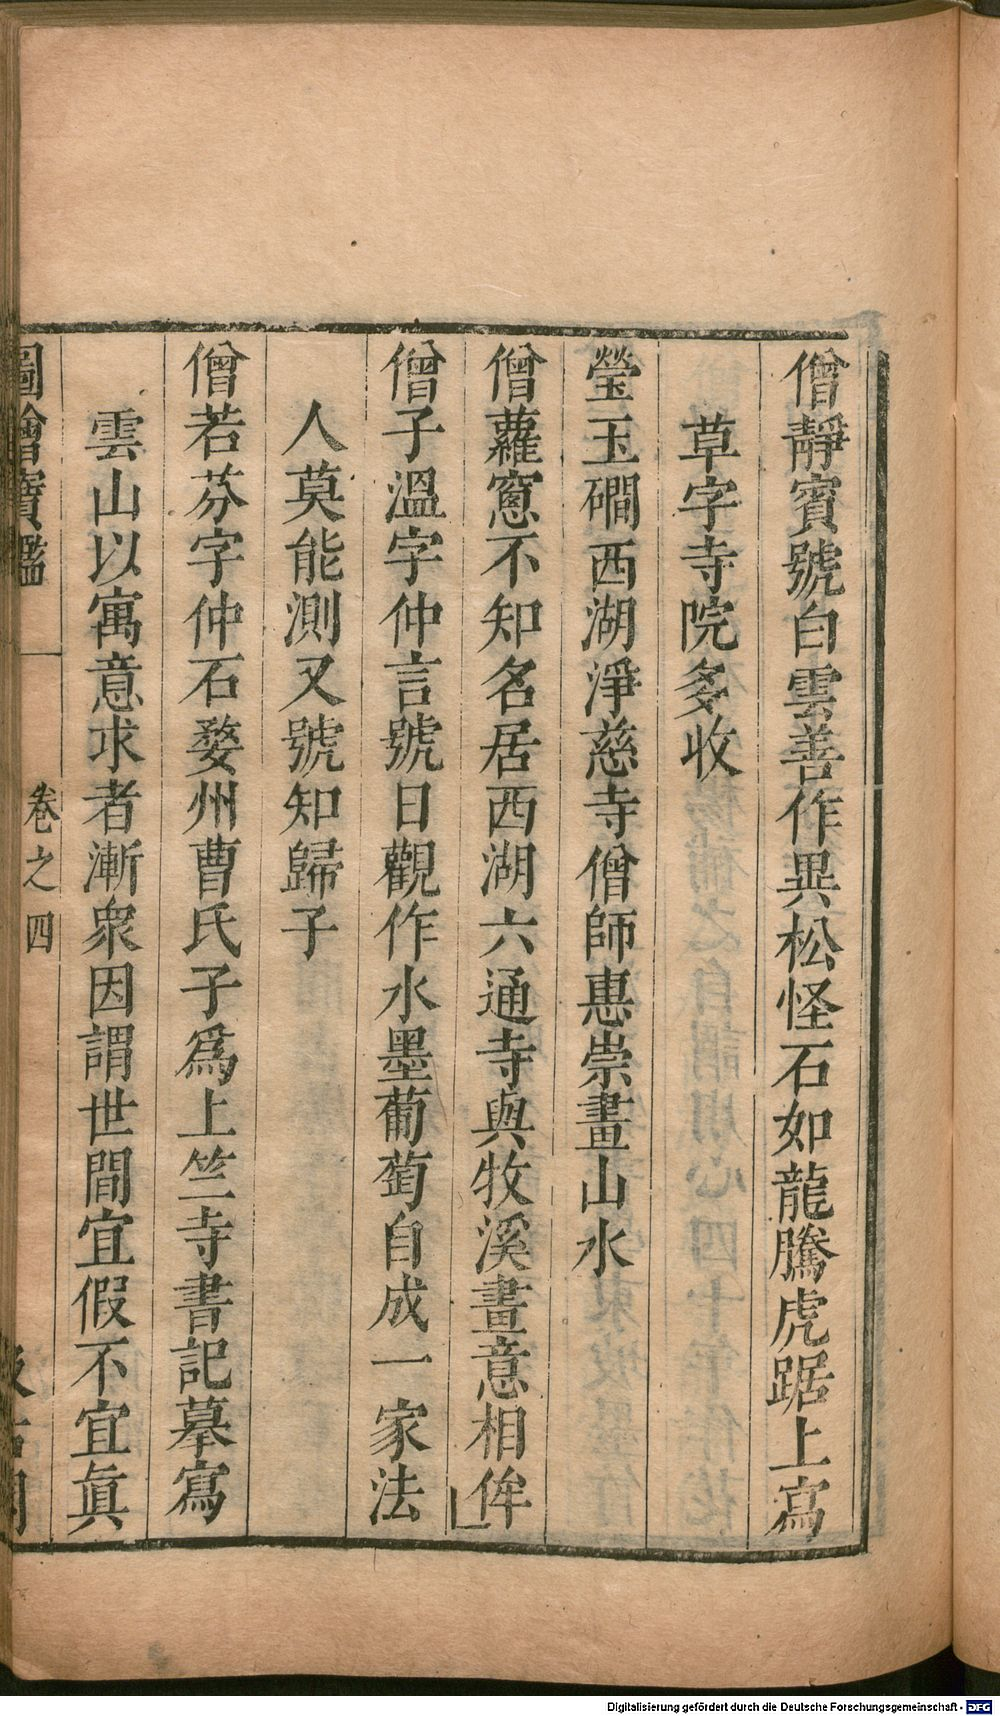 僧靜賓號白雲善作異松怪石如龍騰虎踞上寫
草字寺院多收
瑩玉磵西湖淨慈寺僧師惠崇畫山水
僧蘿窓不知名居西湖六通寺與牧溪畫意相侔
僧子溫字仲言號日觀作水墨葡萄自成一家法
人莫能測又號知歸子
僧若芬字仲石婺州曹氏子爲上竺寺書記摹寫
雲山以寓意求者漸衆因謂世間宜假不宜眞
圖繪寶鑑 卷之四
Digitalisierung gefördert durch die Deutsche Forschungsgemeinschaft - DFG